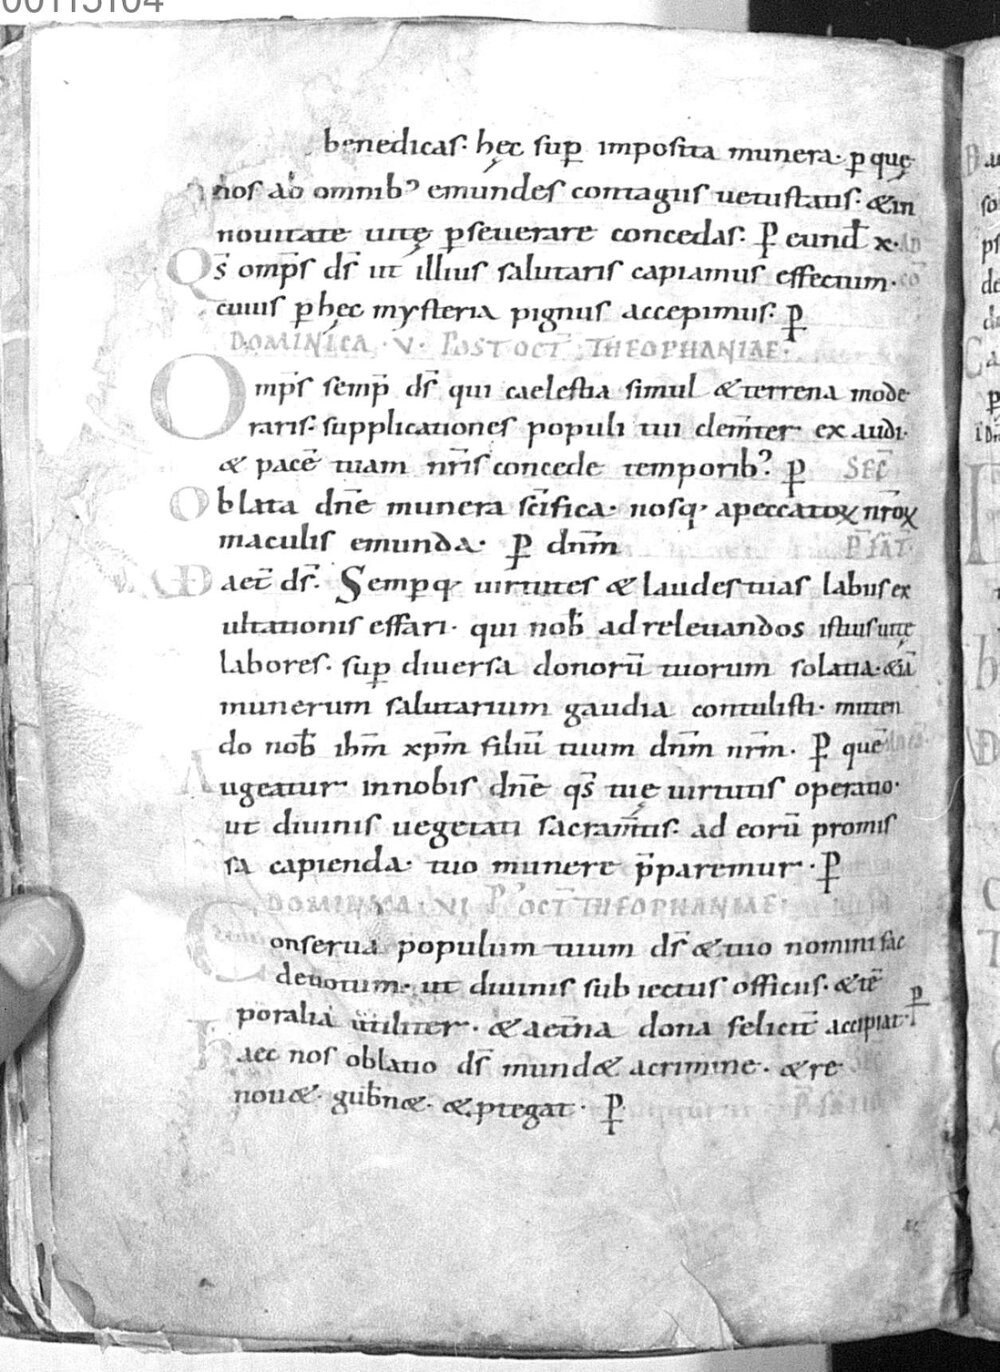 benedicas· hęc sup̲ imposita munera· p̲ quę
nos ab omnib᾽ emundes contagiis uetustatis· &in
nouitate uitę p̲seuerare concedas· P̲ eund̄ x·
Qs̄ omp̄s ds̄ ut illius salutaris capiamus effectum· cō
cuius p̲ hęc mysteria pignus accepimus· P̲
DOMINICA · V · POST OCT̄ THEOPHANIAE·
Omp̄s semp̲ ds̄ qui caelestia simul & terrena mode
raris· supplicationes populi tui clem̄ter ex audi·
& pacē tuam nr̄is concede temporib᾽ P̲ SEC̄
Oblata dn̄e munera sc̄ifica· nosq· apeccatoꝝ nr̄oꝝ
maculis emunda· P̲ dnm̄ P̄FAT̄·
VD aet̄ ds̄. Sempq· uirtutes & laudes tuas labiis ex
ultationis effari· qui nob̄ ad releuandos istius uitę
labores· sup̲ diuersa donorū tuorum solatia· &iā
munerum salutarium gaudia contulisti· mitten
do nob̄ ihm̄ xpm̄ filiū tuum dnm̄ nrm̄· P̲ quē
Augeatur in nobis dn̄e qs̄ tuę uirtutis operatio·
ut diuinis uegetati sacram̄tis· ad eorū promis
sa capienda· tuo munere p̄paremur· P̲
DOMINICA · VI P᾽ OCT̄ THEOPHANIAE·
Conserua populum tuum ds̄ & tuo nomini fac
deuotum· ut diuinis subiectus officiis· & tē
poralia utiliter· & aet̄na dona felicit̄ accipiat· P̲
Haec nos oblatio ds̄ mund& acrimine· & re SEC̄
nou&· gub̄n&· & p̲tegat· P̲